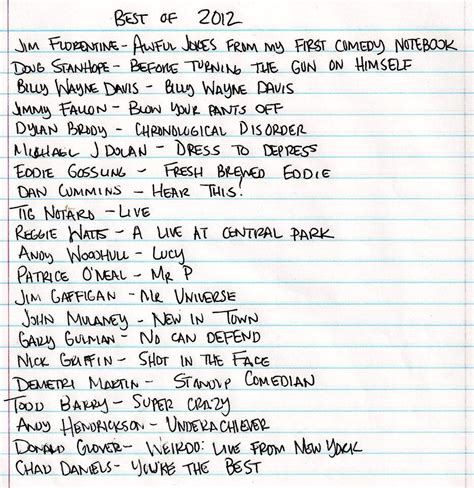 BEST OF 2012
JIM FLORENTINE - AWFUL JOKES FROM MY FIRST COMEDY NOTEBOOK
DOUG STANHOPE - BEFORE TURNING THE GUN ON HIMSELF
BILLY WAYNE DAVIS - BILLY WAYNE DAVIS
JIMMY FALLON - BLOW YOUR PANTS OFF
DYLAN BRODY - CHRONOLOGICAL DISORDER
MICHAEL J DOLAN - DRESS TO DEPRESS
EDDIE GOSSLING - FRESH BREWED EDDIE
DAN CUMMINS - HEAR THIS!
TIG NOTARO - LIVE
REGGIE WATTS - A LIVE AT CENTRAL PARK
ANDY WOODHULL - LUCY
PATRICE O'NEAL - MR P
JIM GAFFIGAN - MR UNIVERSE
JOHN MULANEY - NEW IN TOWN
GARY GULMAN - NO CAN DEFEND
NICK GRIFFIN - SHOT IN THE FACE
DEMETRI MARTIN - STANDUP COMEDIAN
TODD BARRY - SUPER CRAZY
ANDY HENDRICKSON - UNDERACHIEVER
DONALD GLOVER - WEIRDO: LIVE FROM NEW YORK
CHAD DANIELS - YOU'RE THE BEST